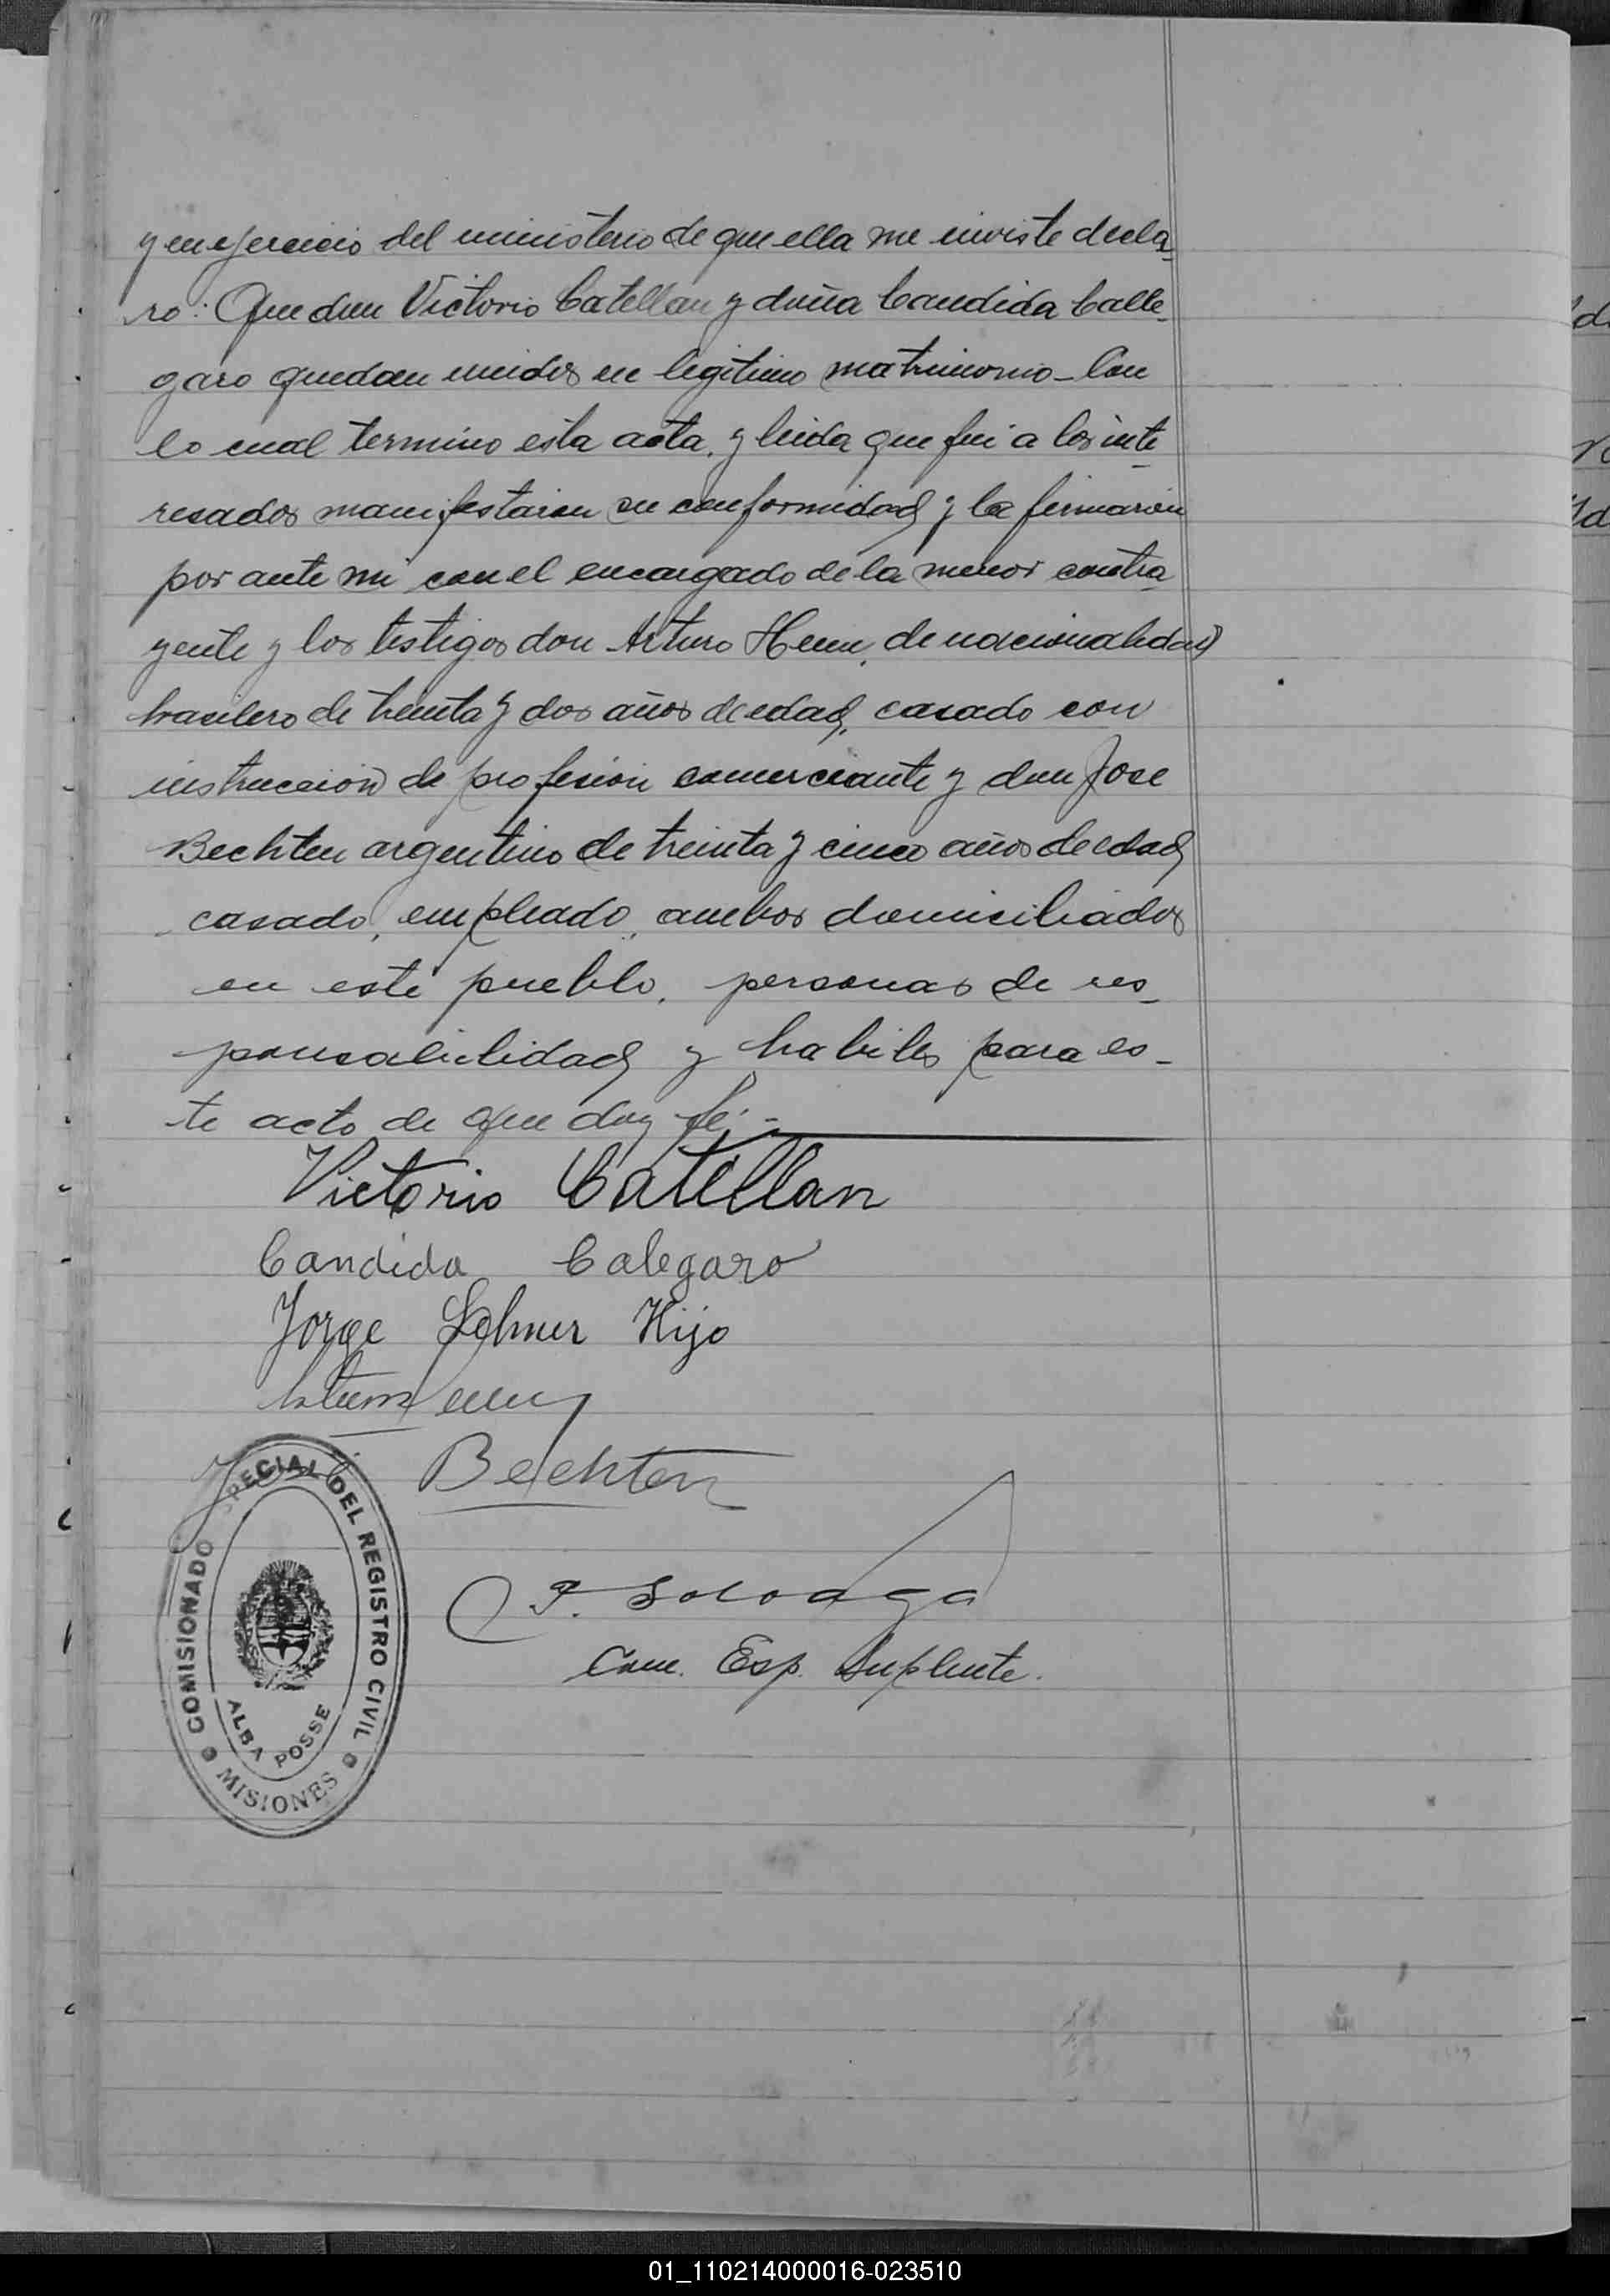 y en ejercicio del ministerio de que ella me inviste decla-
ro: Que don Victorio Catellan y doña Candida Calle-
garo quedan unidos en legitimo matrimonio - Con
lo cual termino esta acta, y leida que fui a los inte
resados manifestaron su conformidad y la firmaron
por ante mi con el encargado de la menor contra
yente y los testigos don Arturo Henn, de nacionalidad
brasilero de treinta y dos años de edad, casado con
instruccion de profesion comerciante y don Jose
Bechten argentino de treinta y cinco años de edad
casado, empleado, ambos domiciliados
en este pueblo, personas de res-
ponsabilidad y habiles para es-
te acto de que doy fé.-
Victorio Catellan
Candida Calegaro
Jorge Lehner Hijo
Bechten
P. Soloaga
Com. Esp. Suplente.
COMISIONADO ESPECIAL DEL REGISTRO CIVIL
ALBA POSSE
MISIONES
01_110214000016-023510